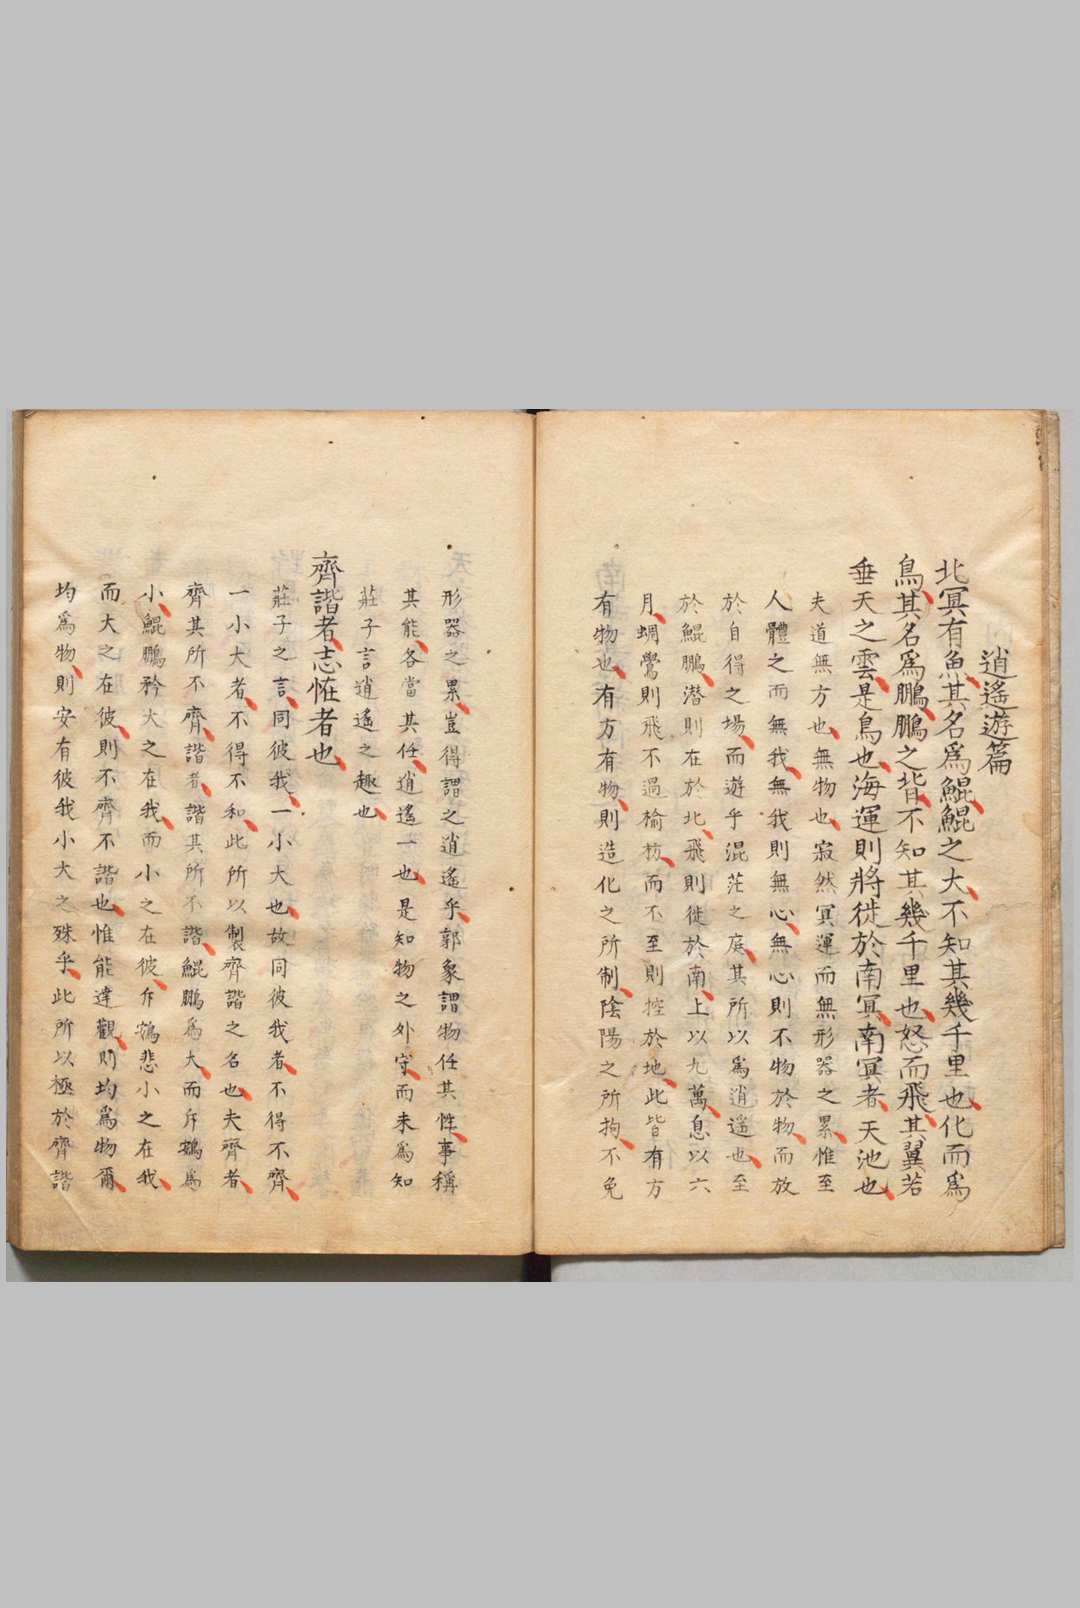 逍遙遊篇
北冥有魚其名爲鯤鯤之大不知其幾千里也化而爲
鳥其名爲鵬鵬之背不知其幾千里也怒而飛其翼若
垂天之雲是鳥也海運則將徙於南冥南冥者天池也
夫道無方也無物也寂然冥運而無形器之累惟至
人體之而無我無我則無心無心則不物於物而放
於自得之場而遊乎混茫之庭其所以爲逍遙也至
於鯤鵬潛則在於北飛則徙於南上以九萬息以六
月蜩鷽則飛不過榆枋而不至則控於地此皆有方
有物也有方有物則造化之所制陰陽之所拘不免
形器之累豈得謂之逍遙乎郭象謂物任其性事稱
其能各當其任逍遙一也是知物之外守而未爲知
莊子言逍遙之趣也
齊諧者志恠者也
莊子之言同彼我一小大也故同彼我者不得不齊
一小大者不得不和此所以製齊諧之名也夫齊者
齊其所不齊諧者諧其所不諧鯤鵬爲大而斥鴳爲
小鯤鵬矜大之在我而小之在彼斥鴳悲小之在我
而大之在彼則不齊不諧也惟能達觀則均爲物爾
均爲物則安有彼我小大之殊乎此所以極於齊諧